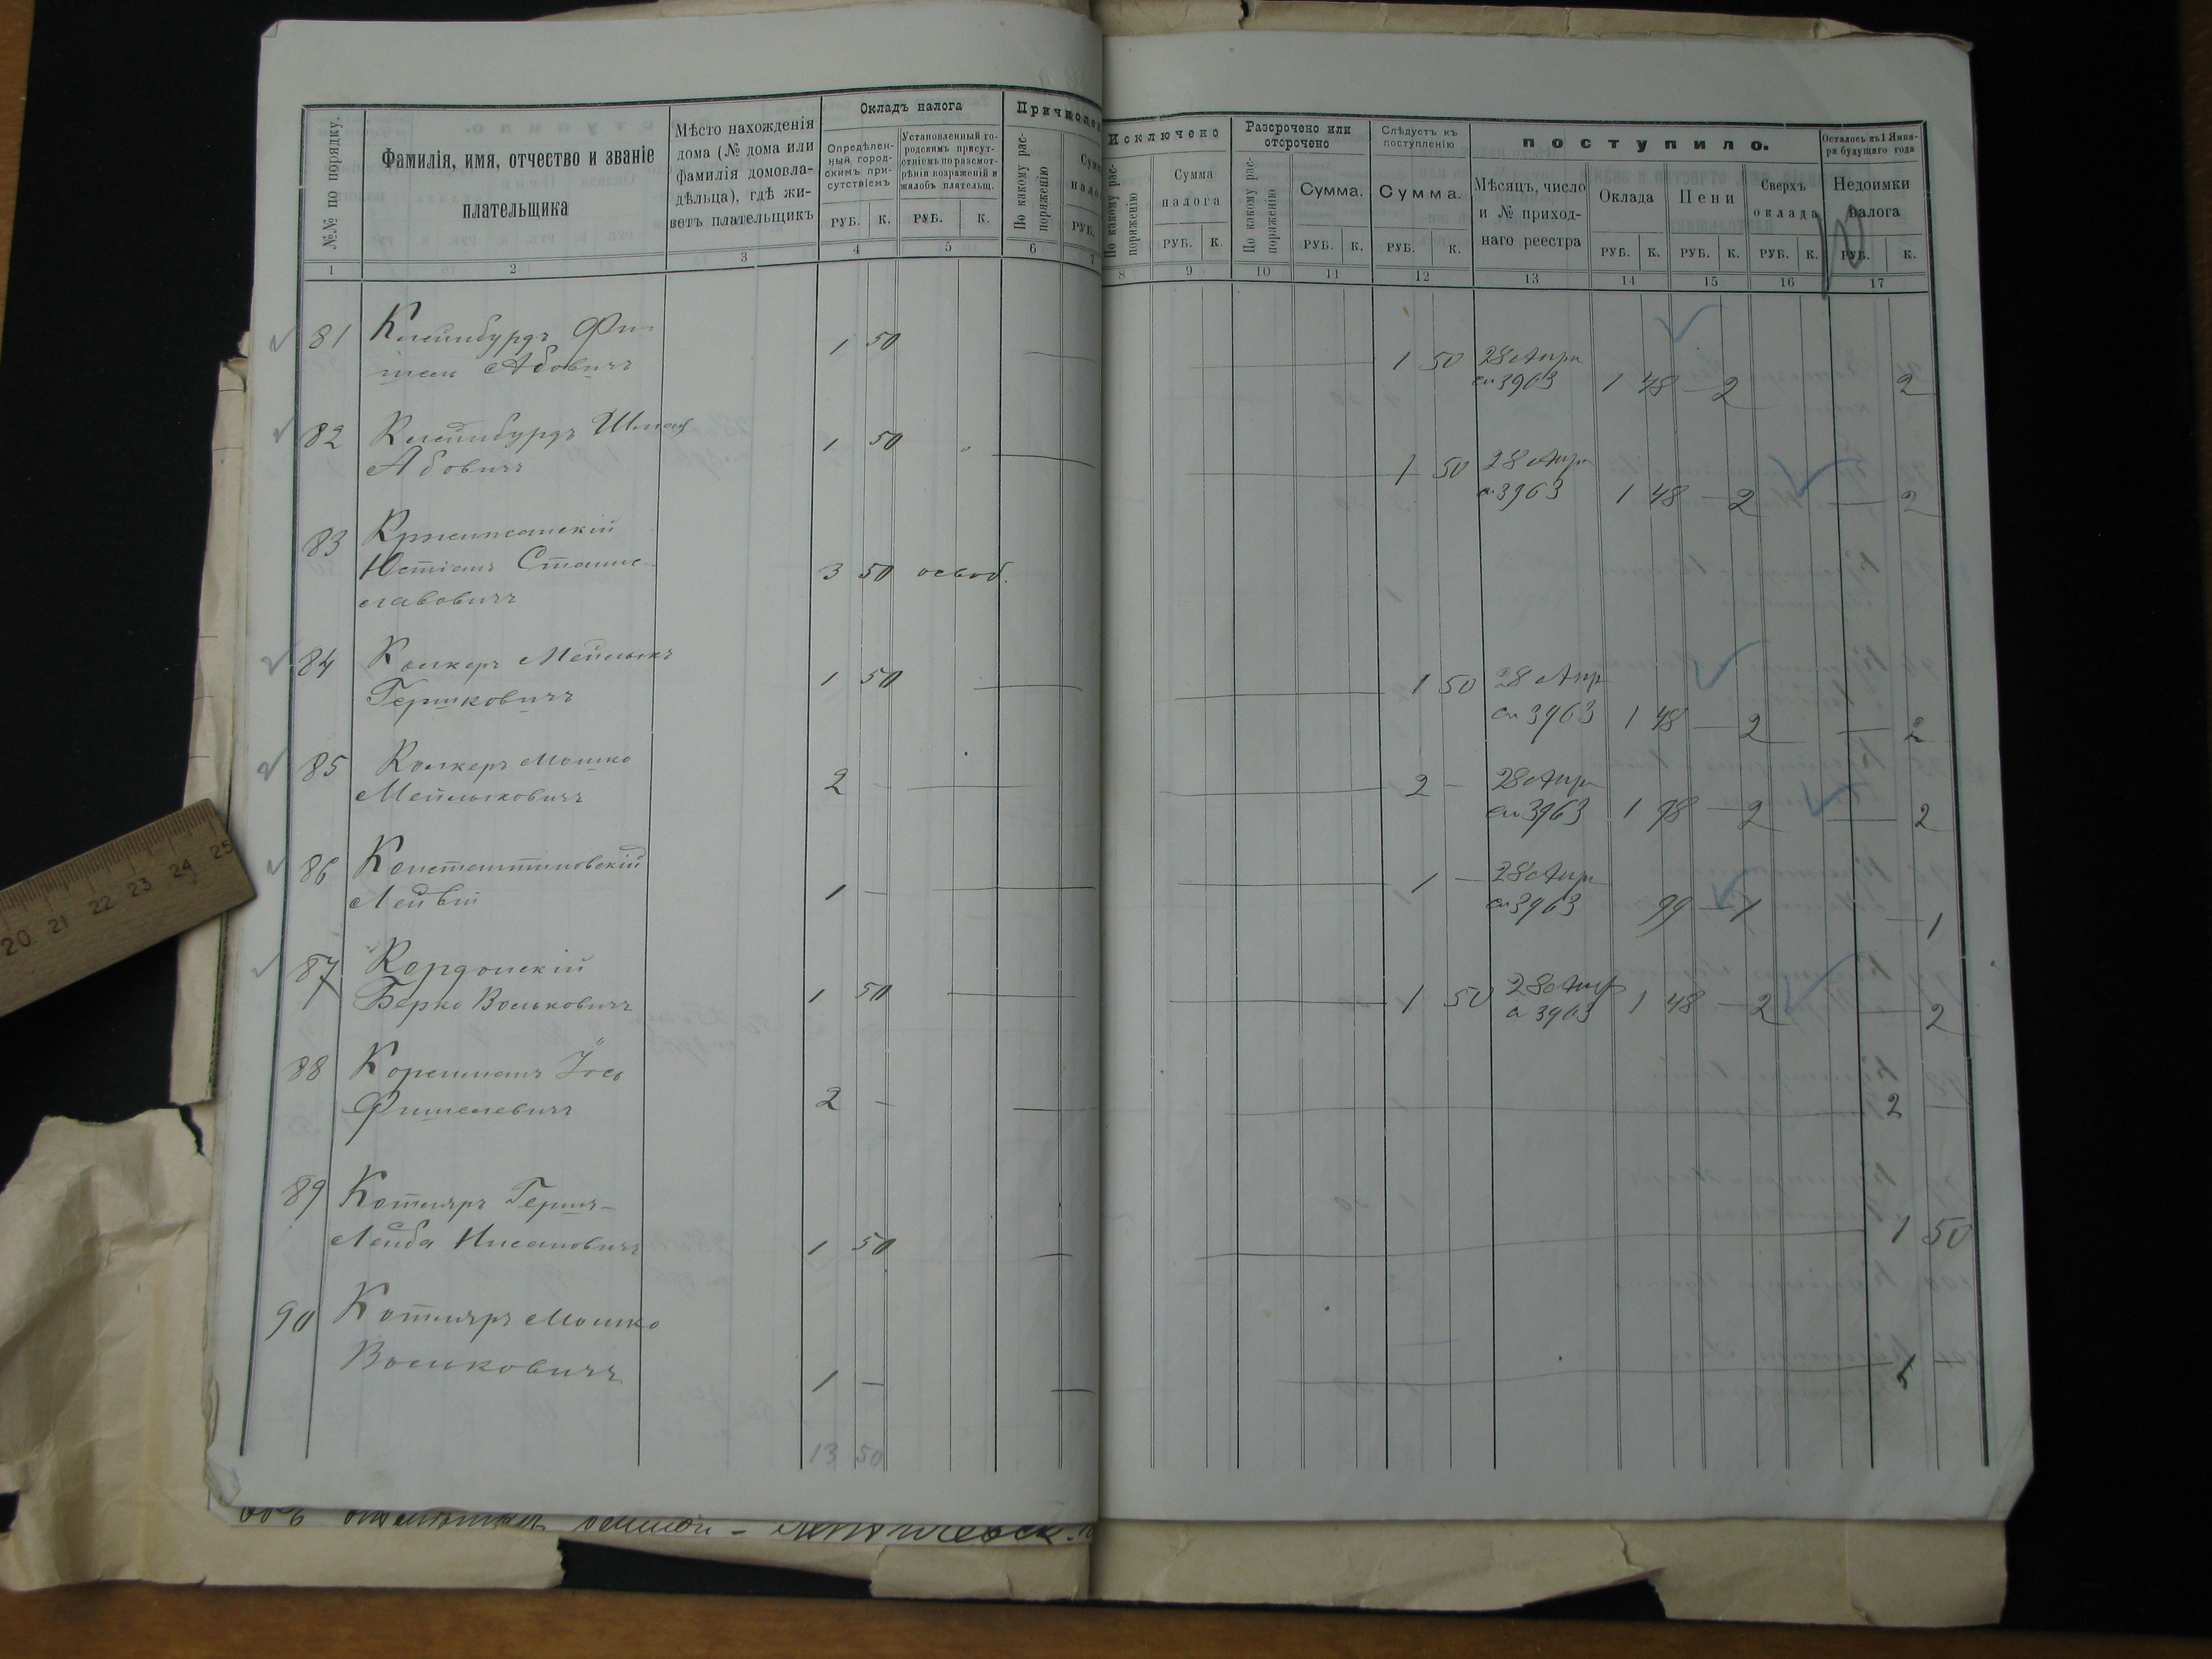 №№ по порядку.
Фамилія, имя, отчество и званіе
плательщика
Мѣсто нахожденія
дома (№ дома или
фамилія домовла-
дѣльца), гдѣ жи-
ветъ плательщикъ
Окладъ налога
Опредѣлен-
ный город-
скимъ при-
сутствіемъ
РУБ. К.
Установленный го-
родскимъ присут-
ствіемъ по разсмот-
рѣніи возраженій и
жалобъ плательщ.
РУБ. К.
Причислен
По какому рас-
поряженію
Сумм
нало
РУБ.
Исключено
По какому рас-
поряженію
Сумма
налога
РУБ. К.
Разсрочено или
отсрочено
По какому рас-
поряженію
Сумма.
РУБ. К.
Слѣдуетъ къ
поступленію
Сумма.
РУБ. К.
поступило.
Мѣсяцъ, число
и № приход-
наго реестра
Оклада
РУБ. К.
Пени
РУБ. К.
Сверхъ
оклада
РУБ. К.
Осталось къ 1 Янва-
ря будущаго года
Недоимки
налога
РУБ. К.
1 2 3 4 5 6 7 8 9 10 11 12 13 14 15 16 17
81 Клейнбурдъ Фи-
шель Абовичъ
1 50 1 50 28 Апр
ст 3963 1 48 — 2 2
82 Клейнбурдъ Шмая
Абовичъ
1 50 1 50 28 Апр
ст 3963 1 48 — 2 — 2
83
Юстіанъ Станис-
лавовичъ
3 50 освоб.
84 Колкеръ Мейлыхъ
Гершковичъ
1 50 1 50 28 Апр
ст 3963 1 48 — 2 — 2
85 Колкеръ Мошко
Мейлыховичъ
2 - 2 - 28 Апр
ст 3963 1 98 — 2 — 2
86 Константиновскій
Лейвій
1 - 1 - 28 Апр
ст 3963 99 — 1 — 1
87 Кордонскій
Берко Вольковичъ
1 50 1 50 28 Апр
ст 3963 1 48 — 2 — 2
88 Коренманъ Іось
Фишелевичъ
2 - 2 —
89 Котляръ Герш-
Лейба Нисановичъ
1 50 1 50
90 Котляръ Мошко
Вольковичъ
1 — 1
13 50
20 21 22 23 24 25